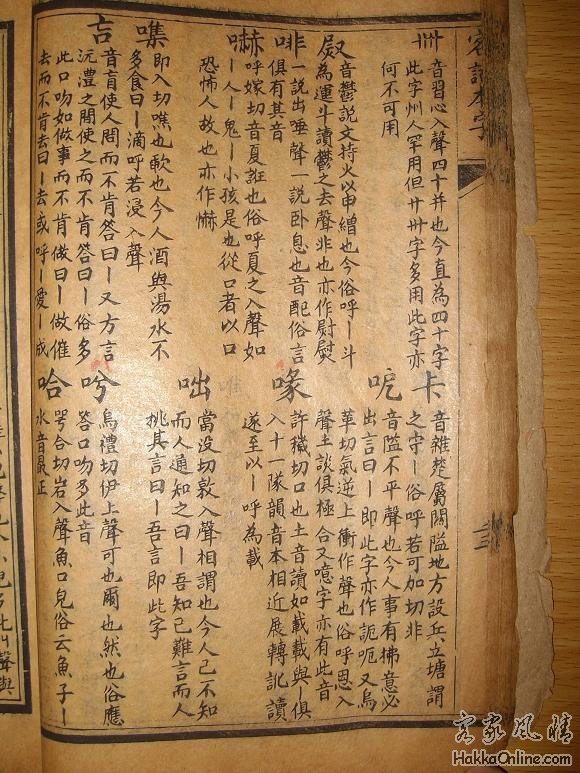 客話本字
卌
音習心入聲四十并也今直為四十字
此字州人罕用但廿卅字多用此字亦
何不可用
音鬱說文持火以申繒也今俗呼丨斗
為運斗讀鬱之去聲非也亦作尉熨
啡
一說出唾聲一說卧息也音配俗言
丨俱有其音
嚇
呼嫁切音夏誑也俗呼夏之入聲如
丨人丨鬼丨小孩是也從口者以口
恐怖人故也亦作嚇
噍
即入切噍也歃也今人酒與湯水不
多食曰丨滴呼若浸入聲
吂
音盲使人問而不肯答曰丨又方言
沅澧之間使之而不肯答曰丨俗多
此口吻如做事而不肯做曰丨做催
去而不肯去曰丨去或呼丨愛丨成
卡
音雜楚屬關隘地方設兵立塘謂
之守丨俗呼若可加切非
呝
音隘不平聲也今人事有拂意必
出言曰丨即此字亦作呃又烏
革切氣逆上衝作聲也俗呼恩入
聲土談俱極合又噫字亦有此音
喙
許穢切口也土音讀如載載與丨俱
入十一隊韻音本相近展轉訛讀
遂至以丨呼為載
咄
當没切敦入聲相謂也今人己不知
而人通知之曰丨吾知己難言而人
挑其言曰丨吾言即此字
兮
烏禮切伊上聲可也爾也然也俗應
答口吻多此音
哈
合切岩入聲魚口皃俗云魚子丨
水音最正
客家風情
HakkaOnline.com